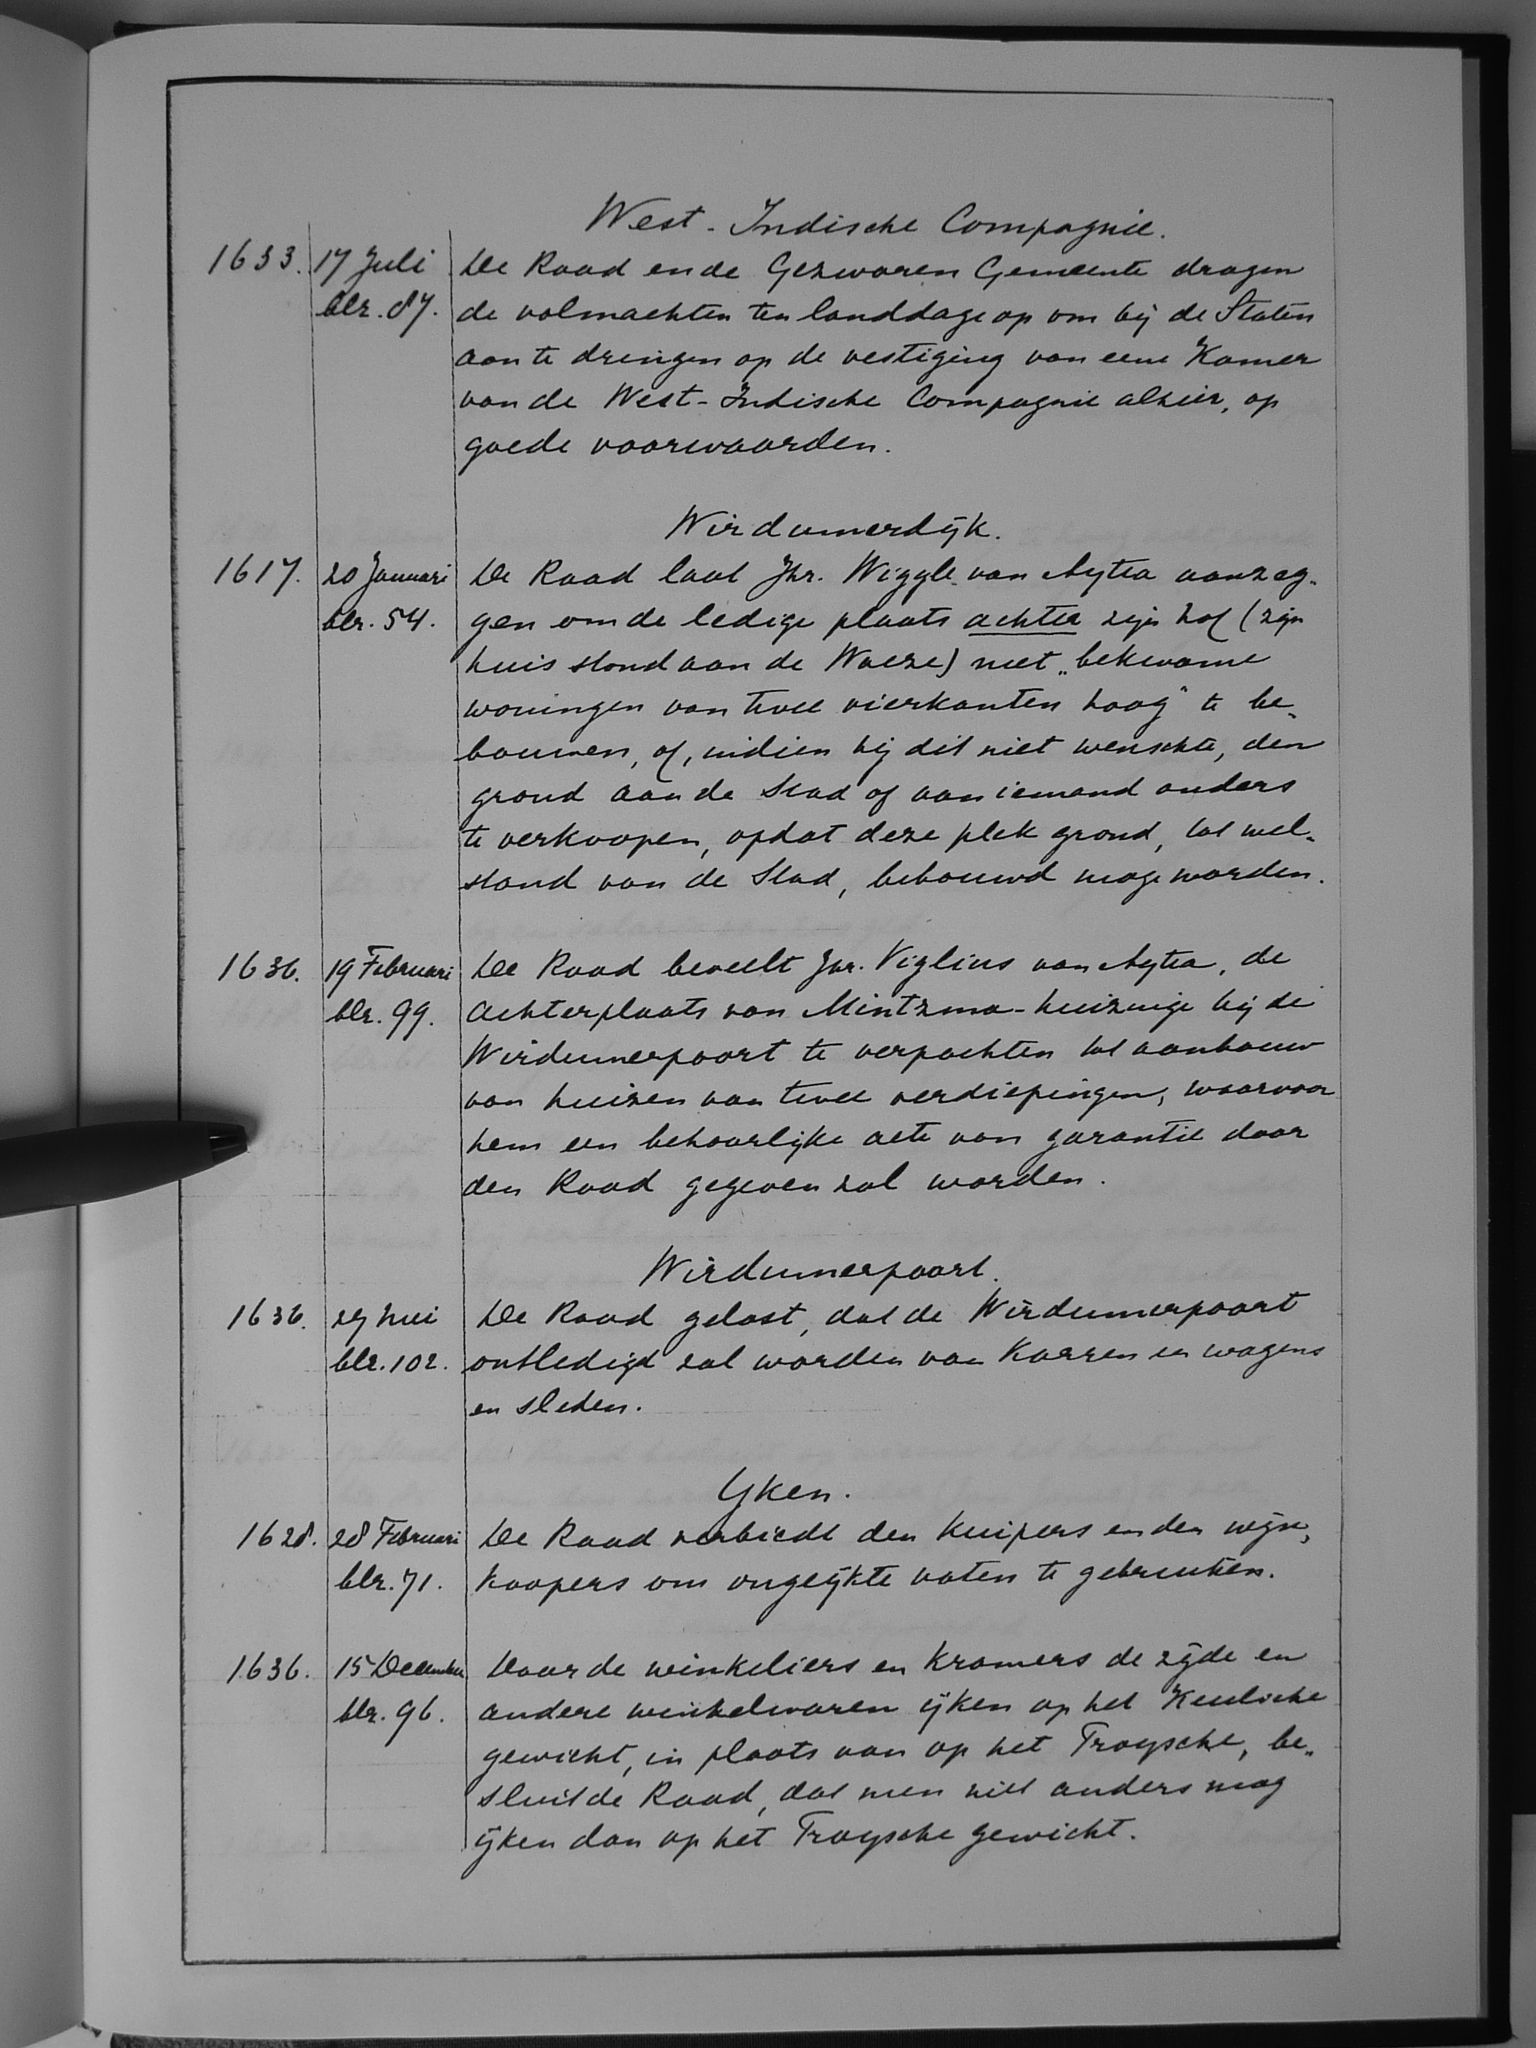 West-Indische Compagnie.
1633. 17 Juli De Raad en de Gezworen Gemeente dragen
blz. 87. de volmachten ten landdage op om bij de Staten
aan te dringen op de vestiging van eene Kamer
van de West-Indische Compagnie alhier, op
goede voorwaarden.
Wirdumerdijk.
1617. 20 Januari De Raad laat Jhr. Wiggle van Aytta aanzeg-
blz. 54. gen om de ledige plaats achter zijn hof (zijn
huis stond aan de Waeze) met „bekwame
woningen van twee vierkanten hoog" te be-
bouwen, of, indien hij dit niet wenschte, den
grond aan de Stad of aan iemand anders
te verkoopen, opdat deze plek grond, tot wel-
stand van de Stad, bebouwd moge worden.
1636. 19 Februari De Raad beveelt Jhr. Viglius van Aytta, de
blz. 99. achterplaats van Mintzma-huizinge bij de
Wirdumerpoort te verpachten tot aanbouw
van huizen van twee verdiepingen, waarvoor
hem een behoorlijke acte van garantie door
den Raad gegeven zal worden.
Wirdumerpoort.
1636. 27 Mei De Raad gelast, dat de Wirdumerpoort
blz. 102. ontledigd zal worden van karren en wagens
en sleden.
IJken.
1628. 28 Februari De Raad verbiedt den kuipers en den wijn-
blz. 71. koopers om ongeijkte vaten te gebruiken.
1636. 15 December Daar de winkeliers en kramers de zijde en
blz. 96. andere winkelwaren ijken op het Keulsche
gewicht, in plaats van op het Troysche, be-
sluit de Raad, dat men niet anders mag
ijken dan op het Troysche gewicht.